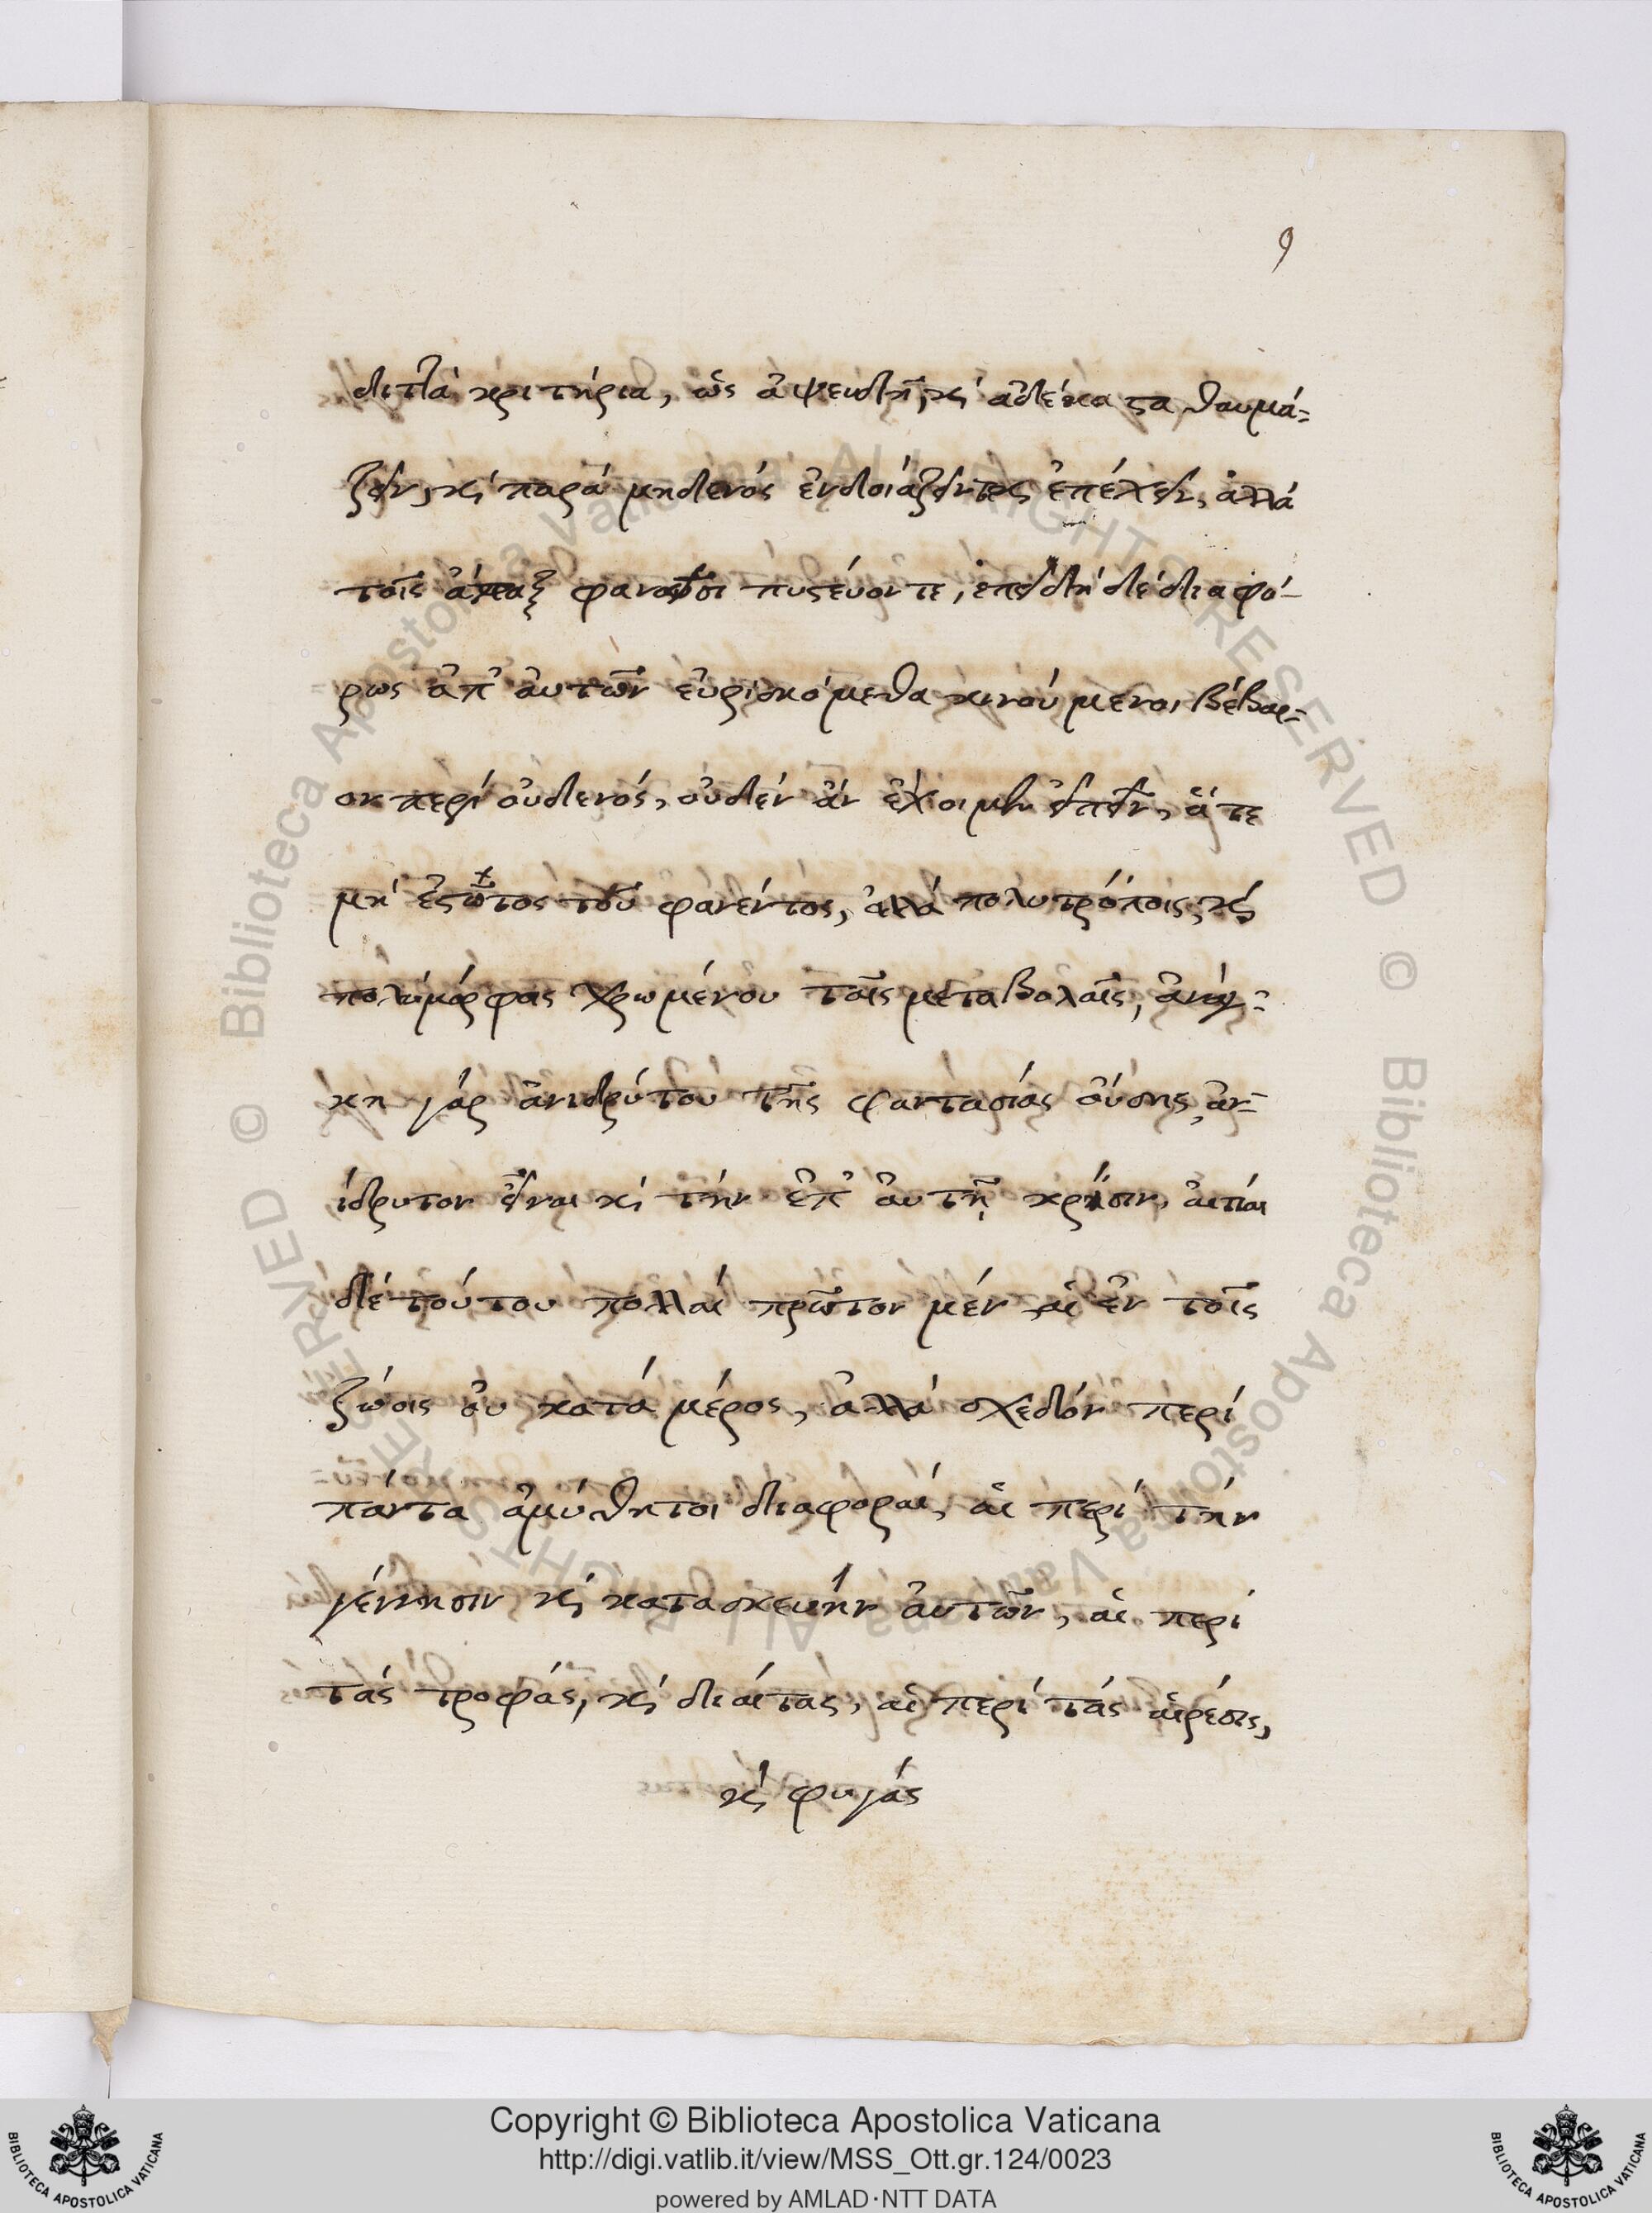 9
δι τὰ κριτήρια, ὡς ἀψευδῆ, κὶ ἀδέκαστα θαυμά=
ζειν, κὶ παρὰ μηδενὸς ἐνδοιάζειν τὲ κὶ ἐπέχειν, ἀλλὰ
τοῖς ἅπαξ φανεῖσι πιστεύοντε, ἐπειδὴ δὲ διαφό-
ρως ἀπ' ἀυτῶν εὑρισκόμεθα κινούμενοι βέβαι=
ον περὶ οὐδενός, οὐδὲν ἂν ἔχοιμεν εἰπεῖν, ἅτε
μὴ ἑστῶτος τοῦ φανέντος, ἀλλὰ πολυτρόποις, κὶ
πολυμόρφοις χρωμένου ταῖς μεταβολαῖς, ἀνάγ=
κη γὰρ ἀνιδρύτου τῆς φαντασίας οὔσης, ἀν=
ίδρυτον εἶναι κὶ τὴν ἐπ' ἀυτῇ κρίσιν, ἀιτίαι
δὲ τούτου πολλαὶ πρῶτον μὲν, αἱ ἐν τοῖς
ζώοις ὀυ κατὰ μέρος, ἀλλὰ σχεδὸν περὶ
πάντα ἀμύθητοι διαφοραὶ, αἱ περὶ τὴν
γέννησιν κὶ κατασκευὴν ἀυτῶν, αἱ περὶ
τὰς τροφὰς, κὶ διαίτας, αἱ περὶ τὰς αἱρέσεις,
κὶ φυγάς
Copyright © Biblioteca Apostolica Vaticana
http://digi.vatlib.it/view/MSS_Ott.gr.124/0023
powered by AMLAD·NTT DATA
BIBLIOTECA APOSTOLICA VATICANA
BIBLIOTECA APOSTOLICA VATICANA